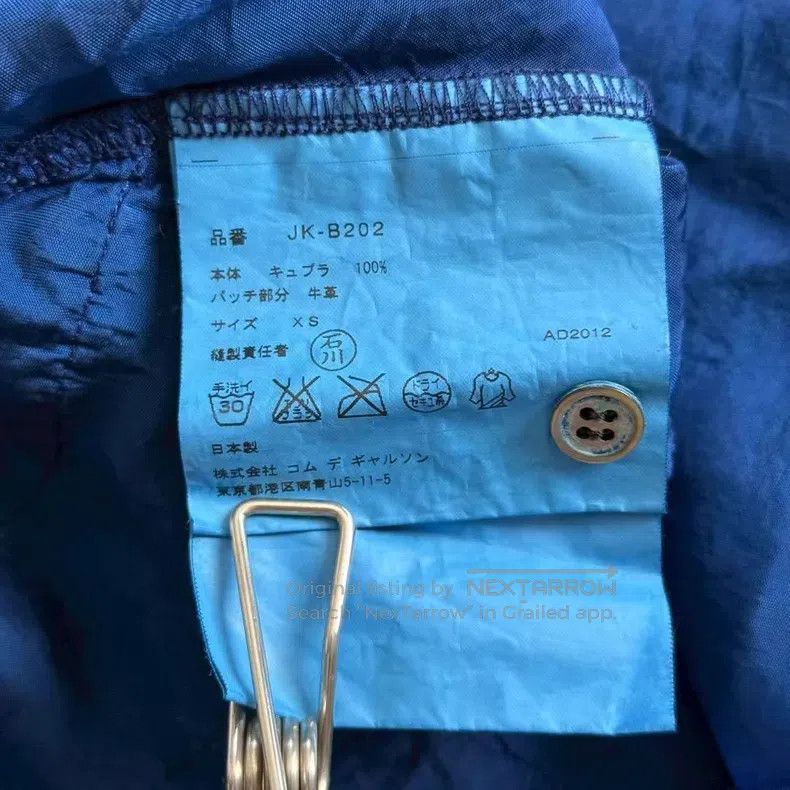 品番 JK-B202
本体 キュプラ 100%
パッチ部分 牛革
サイズ XS
AD2012
縫製責任者 石川
手洗イ 30 エンソサラシ ドライ セキユ系
日本製
株式会社 コム デ ギャルソン
東京都港区南青山5-11-5
Original listing by NEXTARROW
Search "NexTarrow" in Grailed app.